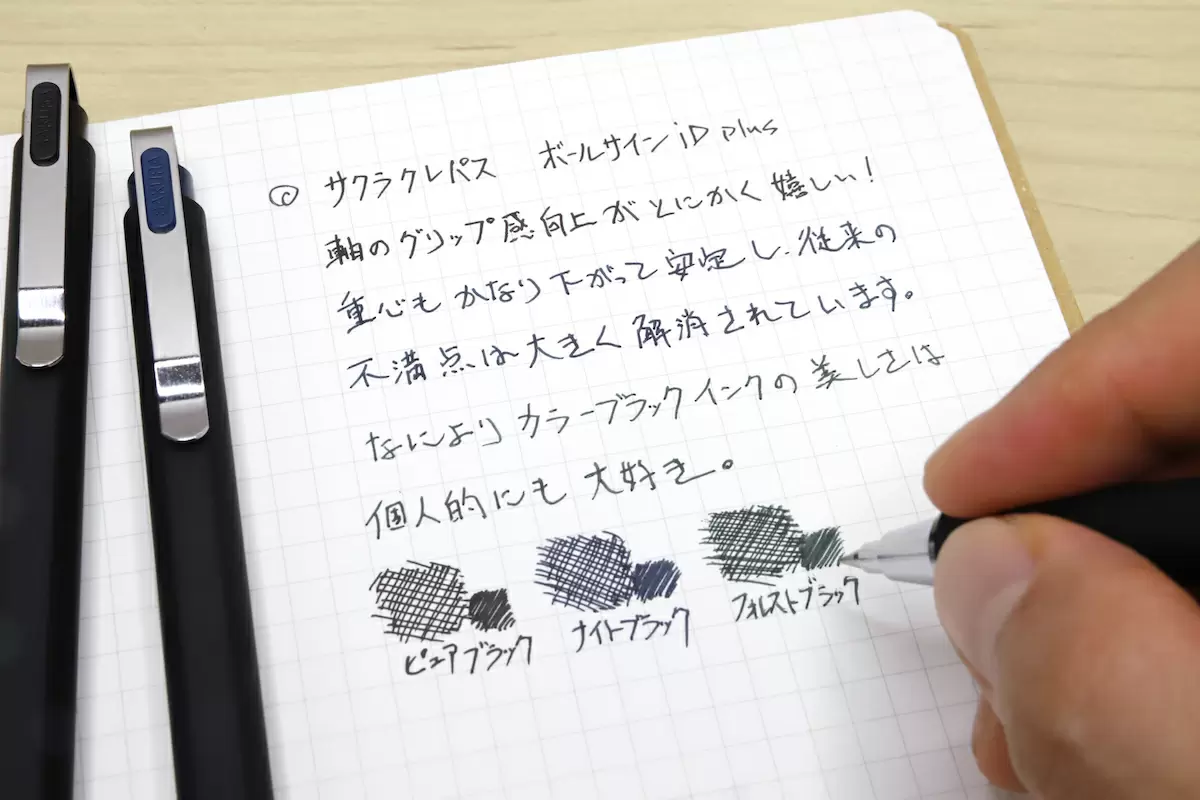 SAKURA
SAKURA
◎ サクラクレパス ボールサインiD plus
軸のグリップ感向上がとにかく嬉しい!
重心もかなり下がって安定し、従来の
不満点は大きく解消されています。
なによりカラーブラックインクの美しさは
個人的にも大好き。
ピュアブラック
ナイトブラック
フォレストブラック